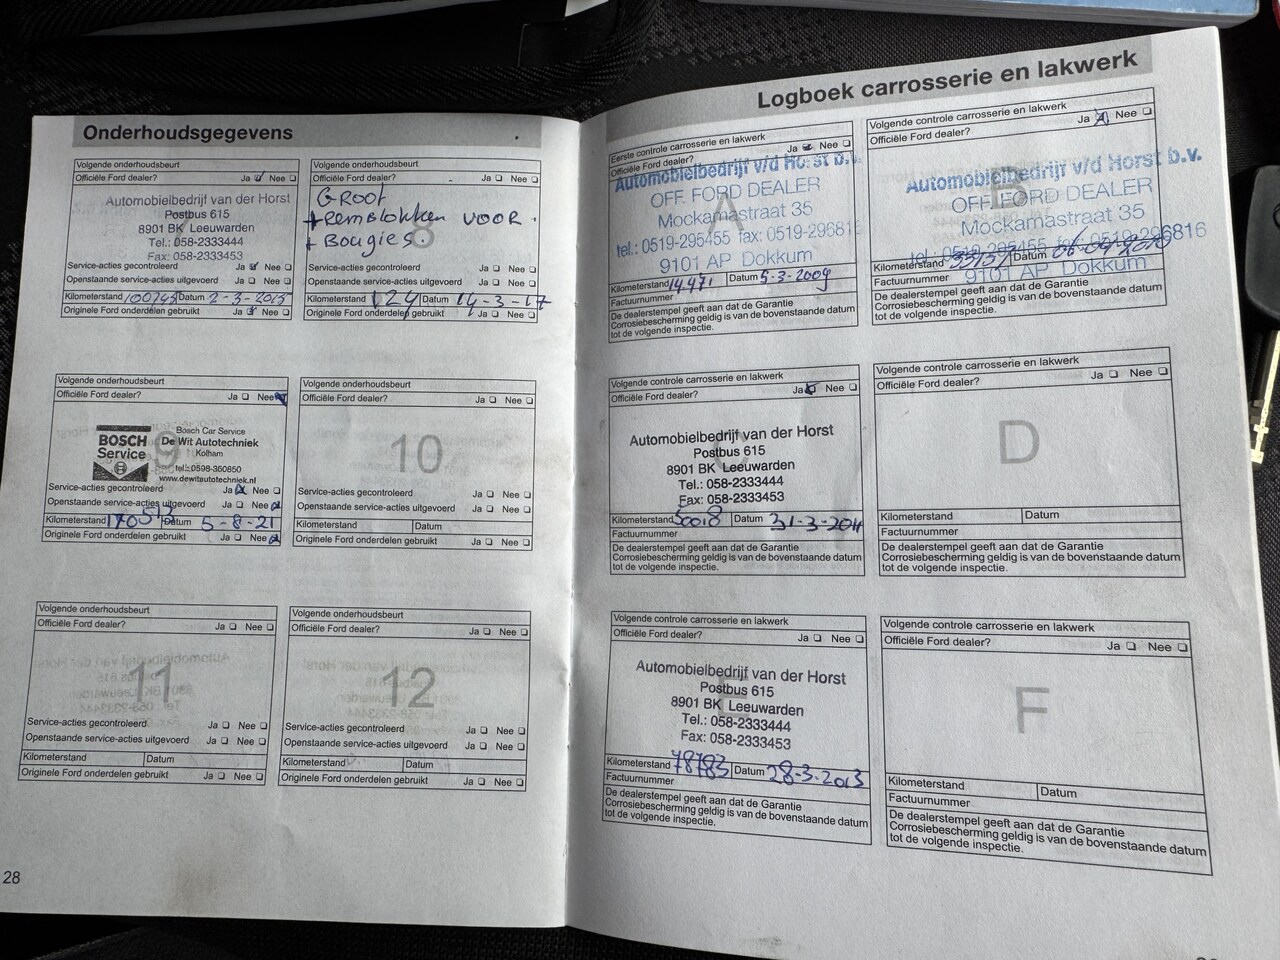 Onderhoudsgegevens
Volgende onderhoudsbeurt
Officiële Ford dealer? Ja Nee
Automobielbedrijf van der Horst
Postbus 615
8901 BK Leeuwarden
Tel.: 058-2333444
Fax: 058-2333453
Service-acties gecontroleerd Ja Nee
Openstaande service-acties uitgevoerd Ja Nee
Kilometerstand Datum 2-3-2015
Originele Ford onderdelen gebruikt Ja Nee
Volgende onderhoudsbeurt
Officiële Ford dealer? Ja Nee
8
Groot
+ Remblokken voor.
+ Bougies
Service-acties gecontroleerd Ja Nee
Openstaande service-acties uitgevoerd Ja Nee
Kilometerstand 124 Datum 14-3-17
Originele Ford onderdelen gebruikt Ja Nee
Volgende onderhoudsbeurt
Officiële Ford dealer? Ja Nee
9
BOSCH
Service
Bosch Car Service
De Wit Autotechniek
Kolham
tel.:0598-350850
www.dewitautotechniek.nl
Service-acties gecontroleerd Ja Nee
Openstaande service-acties uitgevoerd Ja Nee
Kilometerstand Datum 5-8-21
Originele Ford onderdelen gebruikt Ja Nee
Volgende onderhoudsbeurt
Officiële Ford dealer? Ja Nee
10
Service-acties gecontroleerd Ja Nee
Openstaande service-acties uitgevoerd Ja Nee
Kilometerstand Datum
Originele Ford onderdelen gebruikt Ja Nee
Volgende onderhoudsbeurt
Officiële Ford dealer? Ja Nee
11
Service-acties gecontroleerd Ja Nee
Openstaande service-acties uitgevoerd Ja Nee
Kilometerstand Datum
Originele Ford onderdelen gebruikt Ja Nee
Volgende onderhoudsbeurt
Officiële Ford dealer? Ja Nee
12
Service-acties gecontroleerd Ja Nee
Openstaande service-acties uitgevoerd Ja Nee
Kilometerstand Datum
Originele Ford onderdelen gebruikt Ja Nee
28
Logboek carrosserie en lakwerk
Eerste controle carrosserie en lakwerk
Officiële Ford dealer? Ja Nee
A
Automobielbedrijf v/d Horst b.v.
OFF. FORD DEALER
Mockamastraat 35
tel.: 0519-295455 fax: 0519-296816
9101 AP Dokkum
Kilometerstand 14.471 Datum 5-3-2009
Factuurnummer
De dealerstempel geeft aan dat de Garantie
Corrosiebescherming geldig is van bovenstaande datum
tot de volgende inspectie.
Volgende controle carrosserie en lakwerk
Officiële Ford dealer? Ja Nee
B
Automobielbedrijf v/d Horst b.v.
OFF. FORD DEALER
Mockamastraat 35
tel.: 0519-295455 fax: 0519-296816
9101 AP Dokkum
Kilometerstand Datum
Factuurnummer
De dealerstempel geeft aan dat de Garantie
Corrosiebescherming geldig is van bovenstaande datum
tot de volgende inspectie.
Volgende controle carrosserie en lakwerk
Officiële Ford dealer? Ja Nee
C
Automobielbedrijf van der Horst
Postbus 615
8901 BK Leeuwarden
Tel.: 058-2333444
Fax: 058-2333453
Kilometerstand 50018 Datum 31-3-2011
Factuurnummer
De dealerstempel geeft aan dat de Garantie
Corrosiebescherming geldig is van bovenstaande datum
tot de volgende inspectie.
Volgende controle carrosserie en lakwerk
Officiële Ford dealer? Ja Nee
D
Kilometerstand Datum
Factuurnummer
De dealerstempel geeft aan dat de Garantie
Corrosiebescherming geldig is van bovenstaande datum
tot de volgende inspectie.
Volgende controle carrosserie en lakwerk
Officiële Ford dealer? Ja Nee
E
Automobielbedrijf van der Horst
Postbus 615
8901 BK Leeuwarden
Tel.: 058-2333444
Fax: 058-2333453
Kilometerstand 78783 Datum 28-3-2013
Factuurnummer
De dealerstempel geeft aan dat de Garantie
Corrosiebescherming geldig is van bovenstaande datum
tot de volgende inspectie.
Volgende controle carrosserie en lakwerk
Officiële Ford dealer? Ja Nee
F
Kilometerstand Datum
Factuurnummer
De dealerstempel geeft aan dat de Garantie
Corrosiebescherming geldig is van bovenstaande datum
tot de volgende inspectie.